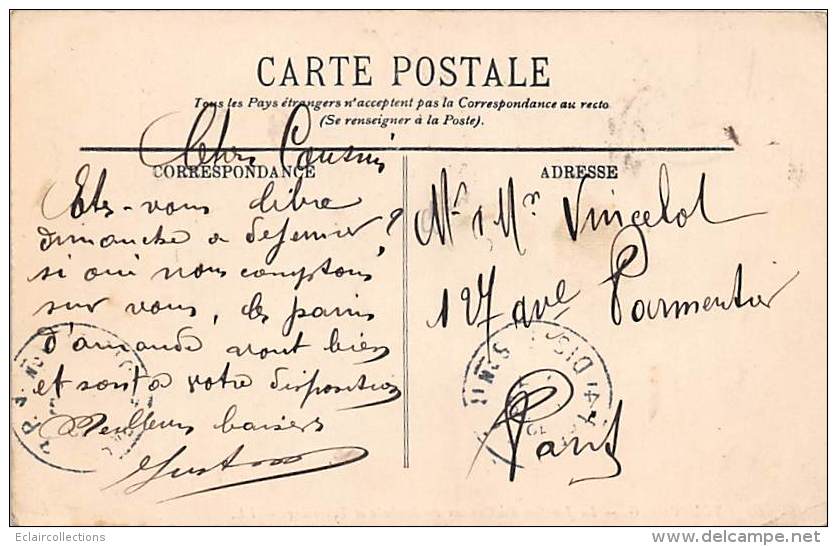 CARTE POSTALE
Tous les Pays étrangers n'acceptent pas la Correspondance au recto
(Se renseigner à la Poste).
CORRESPONDANCE
ADRESSE
Chers Cousins
Etes-vous libre
dimanche a dejeuner ?
si oui nous comptons
sur vous, les pains
d'amande vont bien
et sont a votre disposition
Meilleurs baisers
Mr & Mme Vincelot
127 ave Parmentier
Paris
Eclaircollections
www.delcampe.net